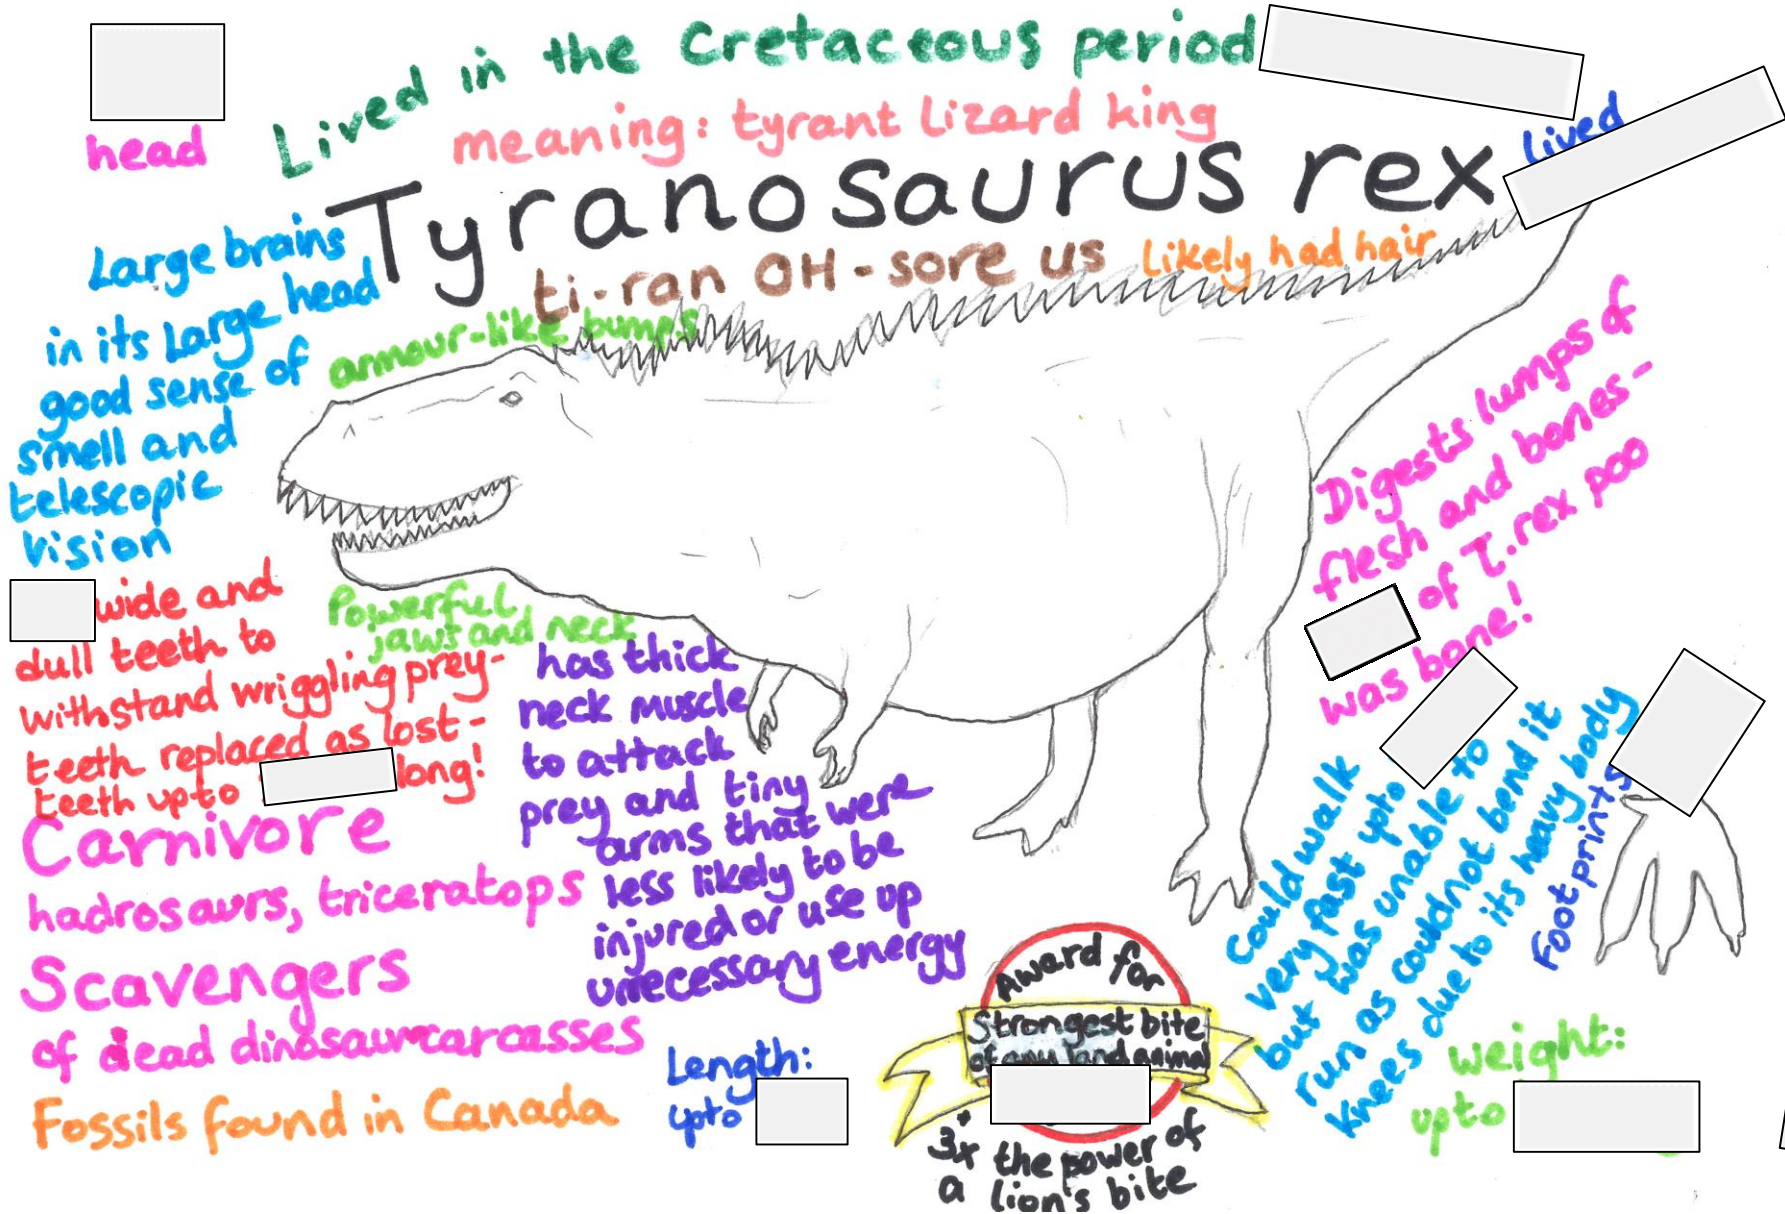 Lived in the Cretaceous period
head
meaning: tyrant lizard king
lived
Tyranosaurus rex
ti-ran OH-sore us
Likely had hair
Large brains
in its Large head
good sense of
smell and
telescopic
vision
armour-like bumps
Digests lumps of
flesh and bones-
of T.rex poo
was bone!
wide and
dull teeth to
withstand wriggling prey-
teeth replaced as lost-
teeth upto
long!
Powerful
jaws and neck
has thick
neck muscle
to attack
prey and tiny
arms that were
less likely to be
injured or use up
unecessary energy
Carnivore
hadrosaurs, triceratops
Scavengers
of dead dinosaur carcasses
Fossils found in Canada
Length:
upto
Award for
Strongest bite
of any land animal
3x the power of
a lion's bite
Could walk
very fast upto
but was unable to
run as couldnot bend it
knees due to its heavy body
Footprints
weight:
upto